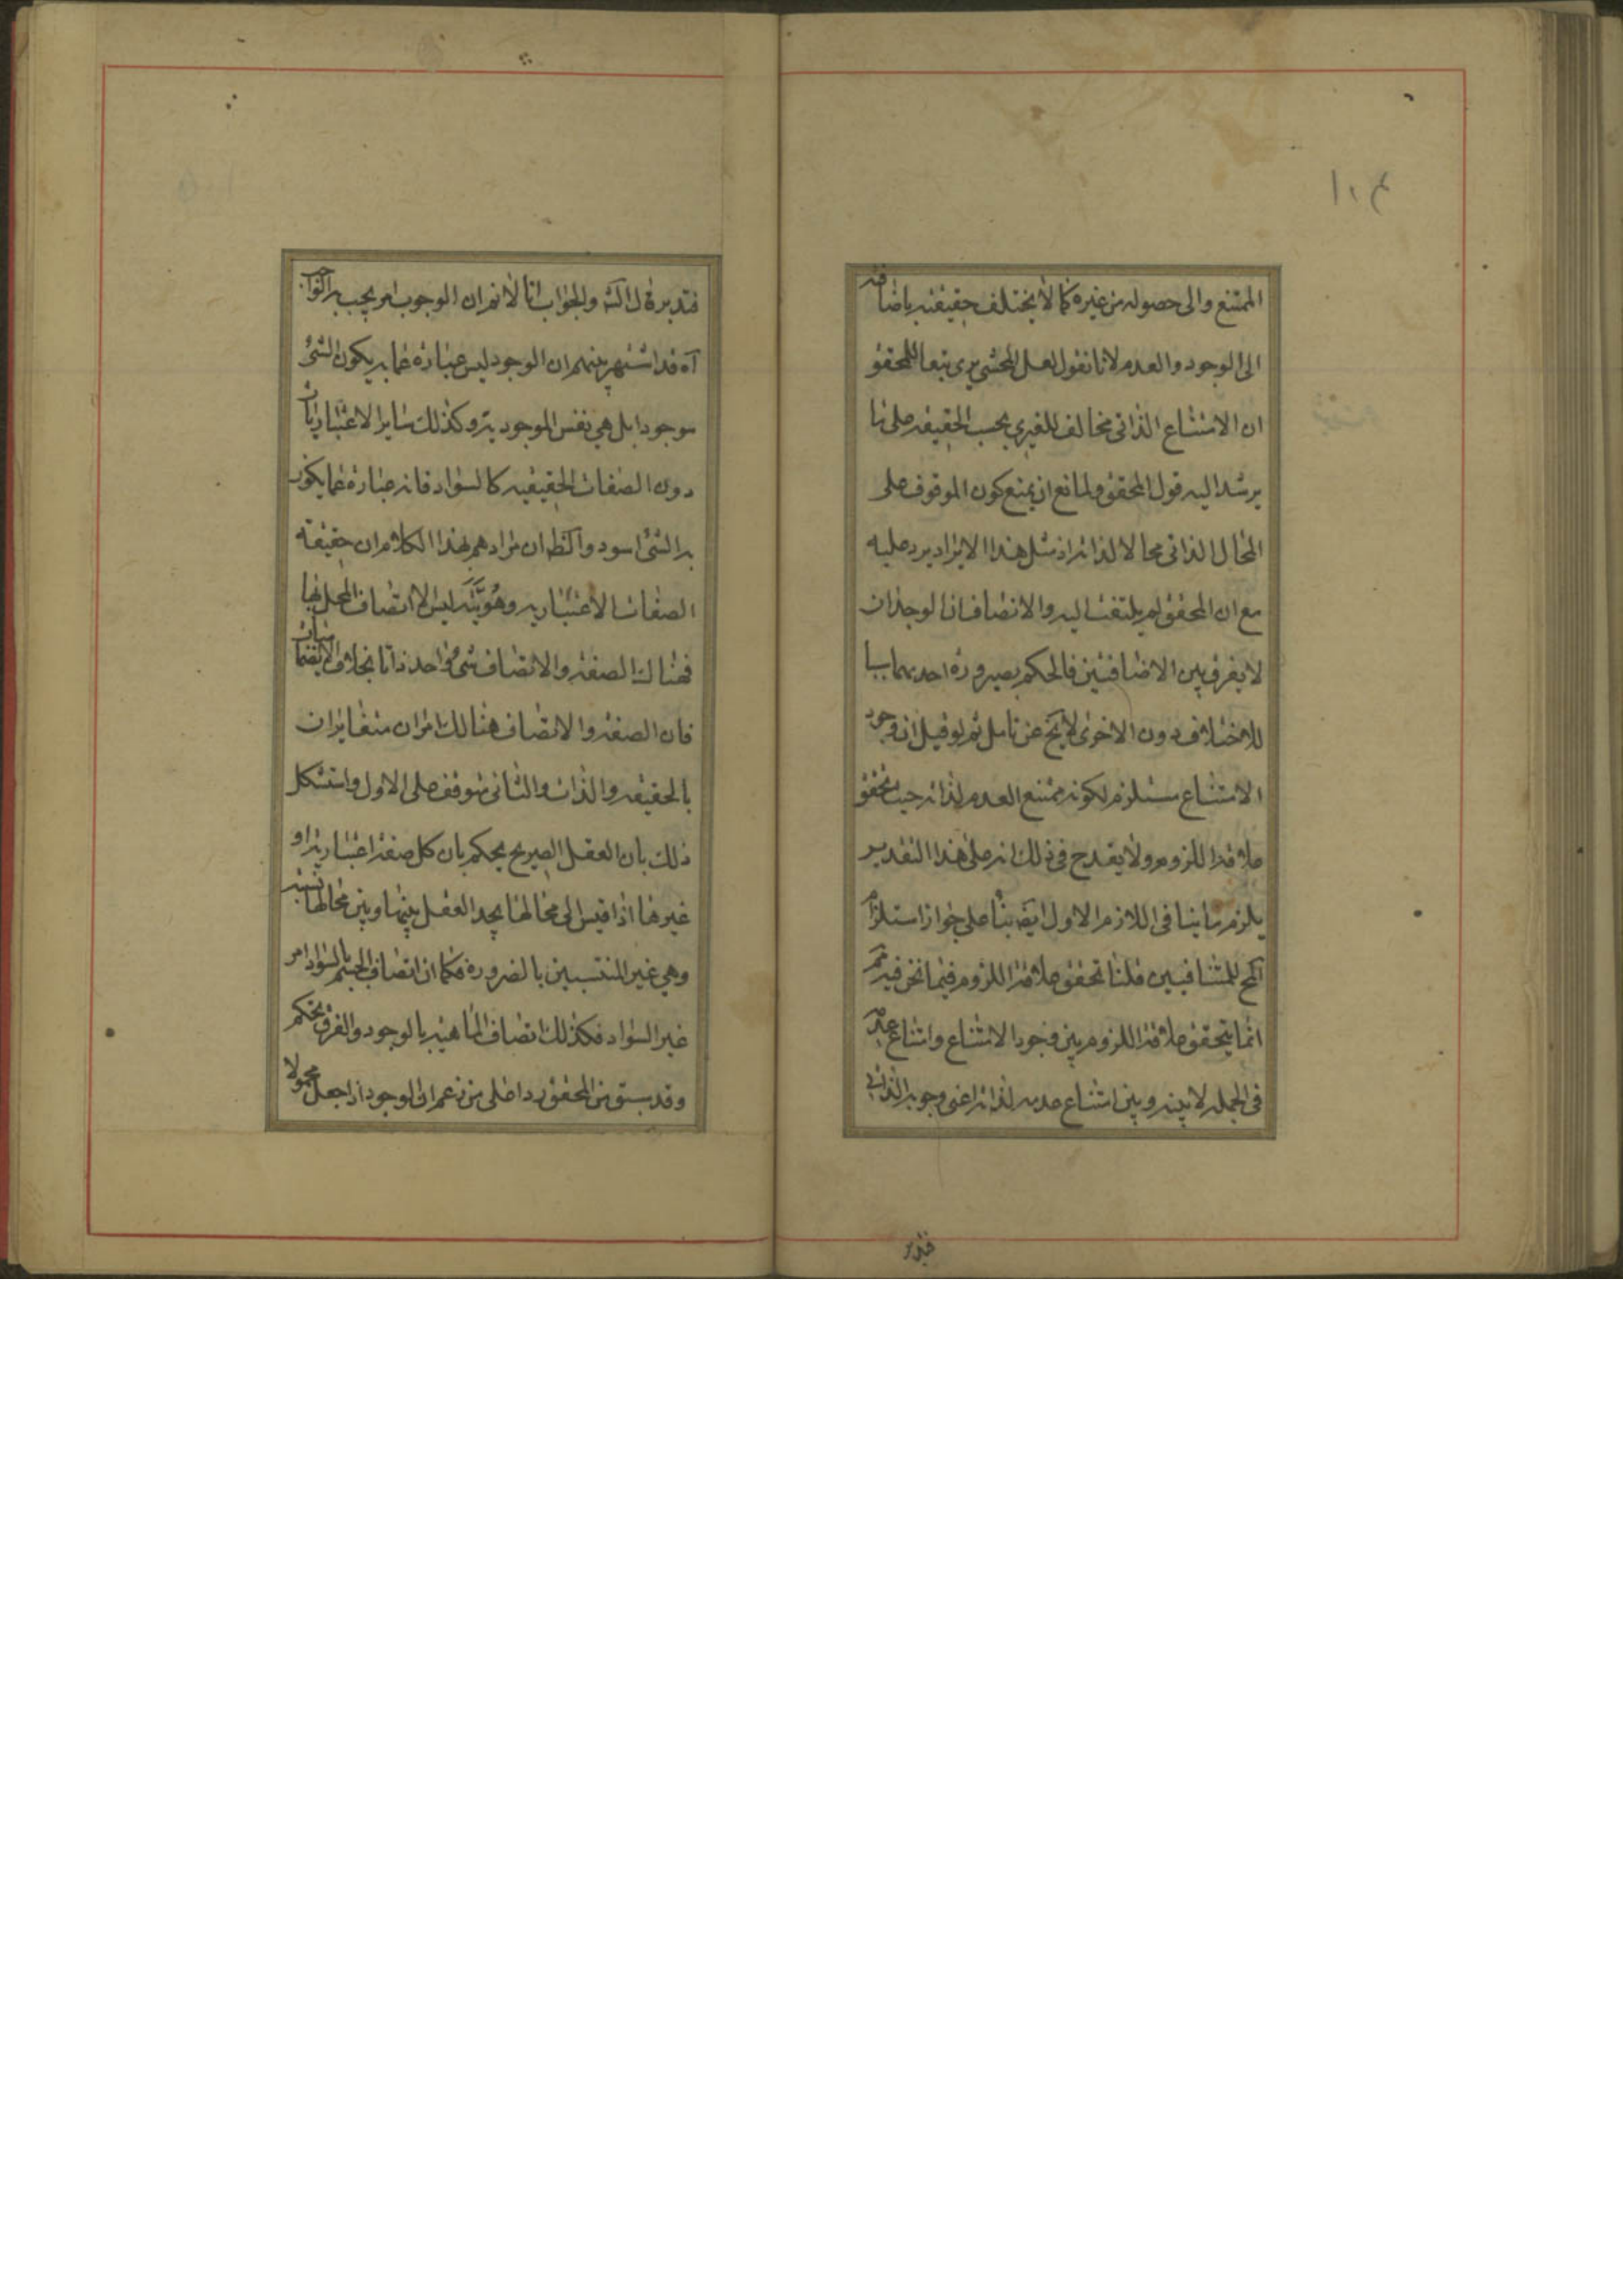 ١٠٤
الممتنع والى حصوله من غيره كما لا يختلف حقيقته باضافته
الى الوجود والعدم لانا نقول لعل المحشي يرى تبعا للمحقق
ان الامتناع الذاتى مخالف للغيري بحسب الحقيقه على ما
يرشد اليه قول المحقق ولمانع ان يمنع كون الموقوف على
المحال الذاتى محالا لذاته اذ مثل هذا الايراد يرد عليه
مع ان المحقق لم يلتفت اليه والانصاف ان الوجدان
لا يفرق بين الاضافتين فالحكم بصيرورة احديهما سببا
للاختلاف دون الاخرى لا يخ عن تامل ثم لو قيل ان وجود
الامتناع مستلزم لكونه ممتنع العدم لذاته حيث تحقق
علاقة اللزوم ولا يقدح فى ذلك انه على هذا التقدير
يلزم ما ينافى اللازم الاول ايضا بناء على جواز استلزام
المح للمتنافيين قلنا تحقق علاقة اللزوم فيما نحن فيه مم
انما يتحقق علاقة اللزوم بين وجود الامتناع وامتناع عدمه
فى الجمله لا بينه وبين امتناع عدمه لذاته اعنى وجوبه الذاتي
فتدبر
فتدبر قال الش والجواب انا لا نم ان الوجوب امر يجب به الواجب
آه قد اشتهر بينهم ان الوجود ليس عبارة عما به يكون الشئ
موجودا بل هي نفس الموجودية وكذلك ساير الاعتباريات
دون الصفات الحقيقيه كالسواد فانه عبارة عما يكون
به الشئ اسود والظ ان مرادهم بهذا الكلام ان حقيقة
الصفات الاعتباريه وهويته ليس الا اتصاف المحل بها
فهناك الصفة والاتصاف شئ واحد ذاتا بخلاف الانضماميات
فان الصفة والاتصاف هنالك امران متغايران
بالحقيقه والذات والثانى متوقف على الاول واستشكل
ذلك بان العقل الصريح يحكم بان كل صفة اعتبارية او
غيرها اذا قيس الى محالها يجد العقل بينها وبين محالها نسبة
وهي غير المنتسبين بالضرورة فكما ان اتصاف الجسم بالسواد امر
غير السواد فكذلك اتصاف الماهيه بالوجود والفرق تحكم
وقد سبق من المحقق ردا على من زعم ان الوجود اذا جعل محمولا